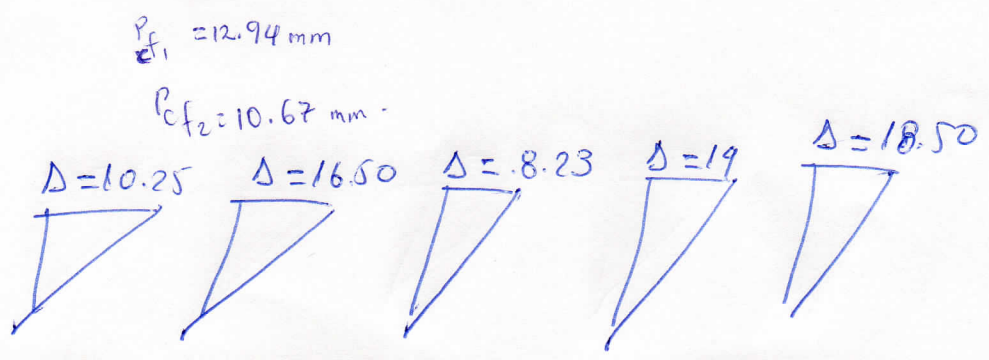 Pcf₁ = 12.94 mm
Pcf₂ = 10.67 mm.
Δ = 10.25 Δ = 16.50 Δ = .8.23 Δ = 19 Δ = 18.50